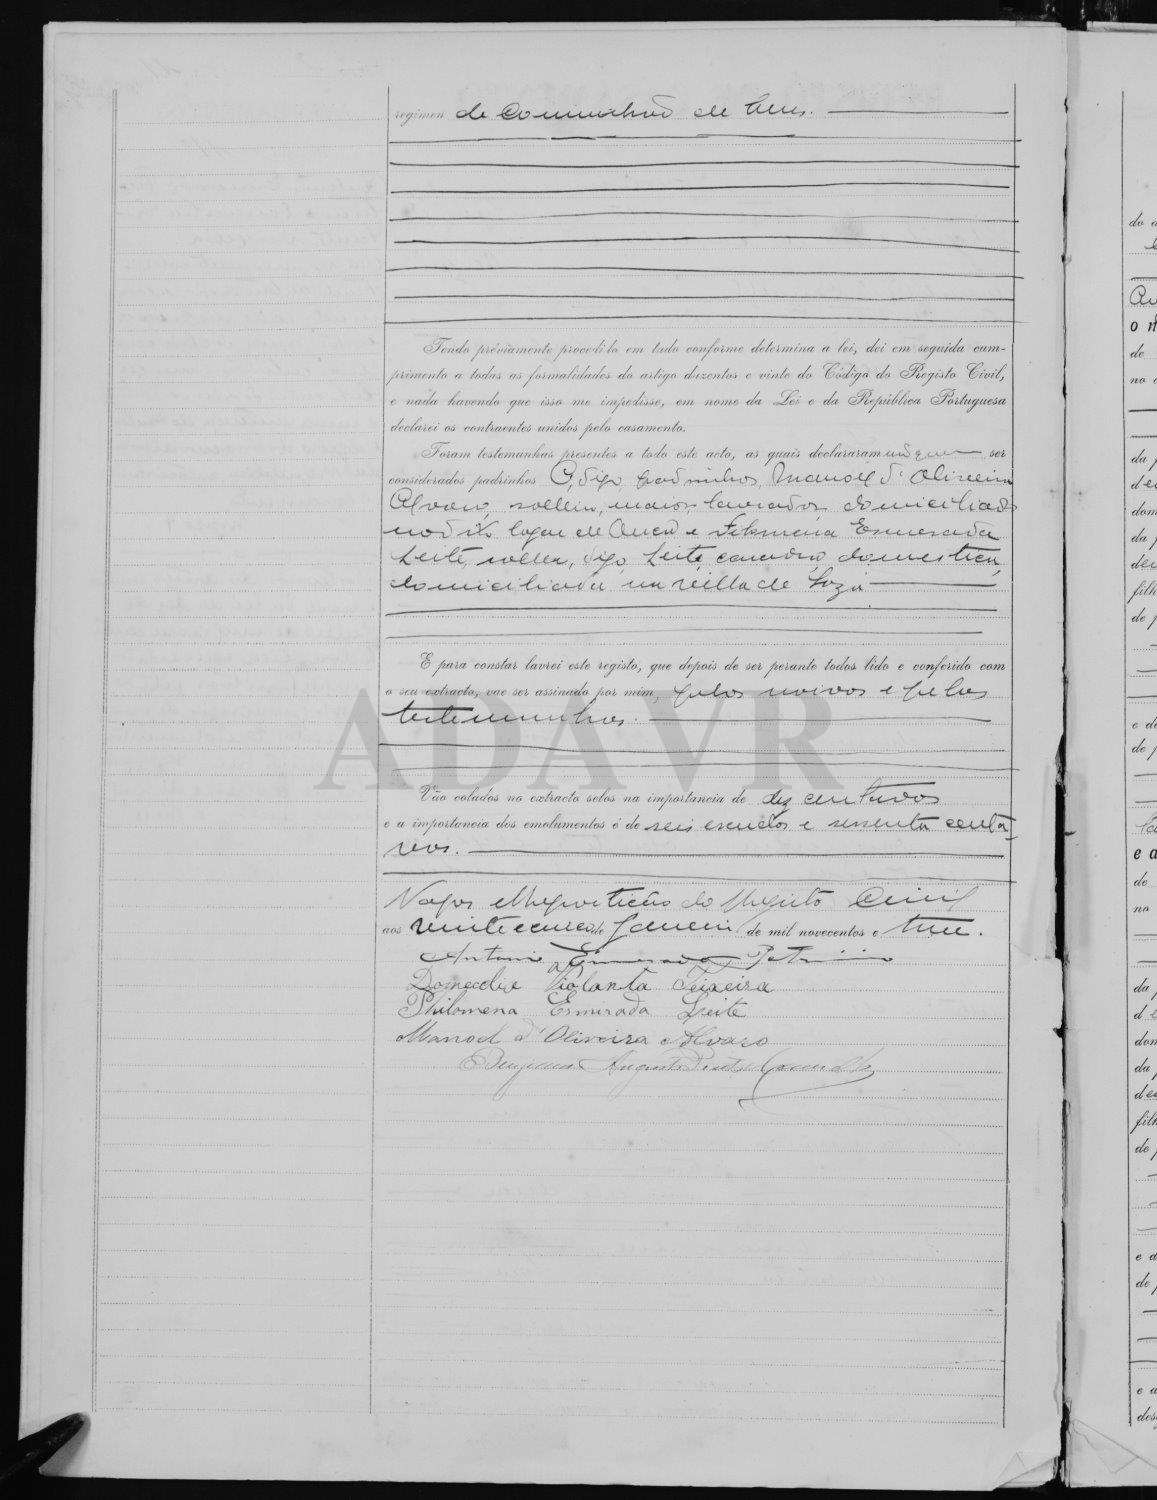 regimen de comunhão de bens.
Tendo préviamente procedido em tudo conforme determina a lei, dei em seguida cum-
primento a todas as formalidades do artigo duzentos e vinte do Código do Registo Civil,
e nada havendo que isso me impedisse, em nome da Lei e da República Portuguesa
declarei os contraentes unidos pelo casamento.
Foram testemunhas presentes a todo este acto, as quais declararam ser
considerados padrinhos digo padrinhos, Manoel d'Oliveira
Alvaro, solteiro, maior, lavrador domiciliado
no dito logar de e Filomena Esmerada
Leite, digo, Leite, casada, domestica,
domiciliada na villa de Soza
E para constar lavrei este registo, que depois de ser perante todos lido e conferido com
o seu extracto, vae ser assinado por mim, pelos noivos e pelas
testemunhas.
Vão colados no extracto selos na importancia de dez centavos
e a importancia dos emolumentos é de seis escudos e sessenta centa-
vos.
Vagos e Repartição do Registo Civil
aos vinte e de Janeiro de mil novecentos e
Antonio Patricio
Violanta Teixeira
Philomena Esmirada Leite
Manoel d'Oliveira Alvaro
Benjamim Augusto
ADAVR
do
da
de
no
o
dom
filh
de
e
desc